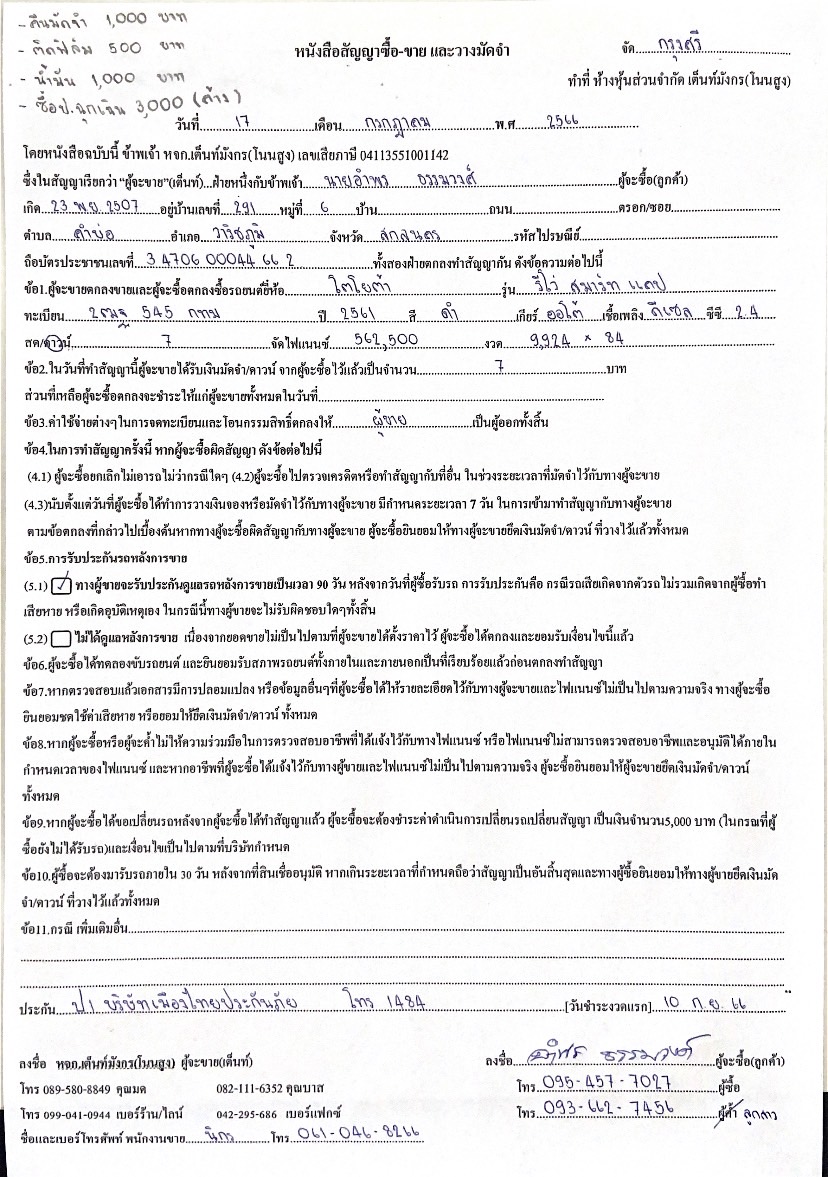 - คืนมัดจำ 1,000 บาท
- ติดฟิล์ม 500 บาท
- น้ำมัน 1,000 บาท
- ซื้อป.ฉุกเฉิน 3,000 (ค้าง)
หนังสือสัญญาซื้อ-ขาย และวางมัดจำ
จัด กรุงศรี
ทำที่ ห้างหุ้นส่วนจำกัด เต็นท์มังกร(โนนสูง)
วันที่ 17 เดือน กรกฎาคม พ.ศ 2566
โดยหนังสือฉบับนี้ ข้าพเจ้า หจก.เต็นท์มังกร(โนนสูง) เลขเสียภาษี 04113551001142
ซึ่งในสัญญาเรียกว่า "ผู้จะขาย"(เต็นท์)...ฝ่ายหนึ่งกับข้าพเจ้า นายอำพร ธรรมวงศ์ ผู้จะซื้อ(ลูกค้า)
เกิด 23 พ.ย. 2507 อยู่บ้านเลขที่ 291 หมู่ที่ 6 บ้าน ถนน ตรอก/ซอย
ตำบล คำบ่อ อำเภอ วาริชภูมิ จังหวัด สกลนคร รหัสไปรษณีย์
ถือบัตรประชาชนเลขที่ 3 4706 00044 66 2 ทั้งสองฝ่ายตกลงทำสัญญากัน ดังข้อความต่อไปนี้
ข้อ1.ผู้จะขายตกลงขายและผู้จะซื้อตกลงซื้อรถยนต์ยี่ห้อ โตโยต้า รุ่น วีโว่ สมาร์ท แคป
ทะเบียน 2ฒฐ 545 กทม ปี 2561 สี ดำ เกียร์ ออโต้ เชื้อเพลิง ดีเซล ซีซี 2.4
สด/ดาวน์ 7 จัดไฟแนนซ์ 562,500 งวด 9,924 × 84
ข้อ2.ในวันที่ทำสัญญานี้ผู้จะขายได้รับเงินมัดจำ/ดาวน์ จากผู้จะซื้อไว้แล้วเป็นจำนวน 7 บาท
ส่วนที่เหลือผู้จะซื้อตกลงจะชำระให้แก่ผู้จะขายทั้งหมดในวันที่
ข้อ3.ค่าใช้จ่ายต่างๆในการจดทะเบียนและโอนกรรมสิทธิ์ตกลงให้ ผู้ขาย เป็นผู้ออกทั้งสิ้น
ข้อ4.ในการทำสัญญาครั้งนี้ หากผู้จะซื้อผิดสัญญา ดังข้อต่อไปนี้
(4.1) ผู้จะซื้อยกเลิกไม่เอารถไม่ว่ากรณีใดๆ (4.2)ผู้จะซื้อไปตรวจเครดิตหรือทำสัญญากับที่อื่น ในช่วงระยะเวลาที่มัดจำไว้กับทางผู้จะขาย
(4.3)นับตั้งแต่วันที่ผู้จะซื้อได้ทำการวางเงินจองหรือมัดจำไว้กับทางผู้จะขาย มีกำหนดระยะเวลา 7 วัน ในการเข้ามาทำสัญญากับทางผู้จะขาย
ตามข้อตกลงที่กล่าวไปเบื้องต้นหากทางผู้จะซื้อผิดสัญญากับทางผู้จะขาย ผู้จะซื้อยินยอมให้ทางผู้จะขายยึดเงินมัดจำ/ดาวน์ ที่วางไว้แล้วทั้งหมด
ข้อ5.การรับประกันรถหลังการขาย
(5.1) ✓ ทางผู้ขายจะรับประกันดูแลรถหลังการขายเป็นเวลา 90 วัน หลังจากวันที่ผู้ซื้อรับรถ การรับประกันคือ กรณีรถเสียเกิดจากตัวรถ ไม่รวมเกิดจากผู้ซื้อทำ
เสียหาย หรือเกิดอุบัติเหตุเอง ในกรณีนี้ทางผู้ขายจะไม่รับผิดชอบใดๆทั้งสิ้น
(5.2) ไม่ได้ดูแลหลังการขาย เนื่องจากยอดขายไม่เป็นไปตามที่ผู้จะขายได้ตั้งราคาไว้ ผู้จะซื้อได้ตกลงและยอมรับเงื่อนไขนี้แล้ว
ข้อ6.ผู้จะซื้อได้ทดลองขับรถยนต์ และยินยอมรับสภาพรถยนต์ทั้งภายในและภายนอกเป็นที่เรียบร้อยแล้วก่อนตกลงทำสัญญา
ข้อ7.หากตรวจสอบแล้วเอกสารมีการปลอมแปลง หรือข้อมูลอื่นๆที่ผู้จะซื้อได้ให้รายละเอียดไว้กับทางผู้จะขายและไฟแนนซ์ไม่เป็นไปตามความจริง ทางผู้จะซื้อ
ยินยอมชดใช้ค่าเสียหาย หรือยอมให้ยึดเงินมัดจำ/ดาวน์ ทั้งหมด
ข้อ8.หากผู้จะซื้อหรือผู้จะค้ำไม่ให้ความร่วมมือในการตรวจสอบอาชีพที่ได้แจ้งไว้กับทางไฟแนนซ์ หรือไฟแนนซ์ไม่สามารถตรวจสอบอาชีพและอนุมัติได้ภายใน
กำหนดเวลาของไฟแนนซ์ และหากอาชีพที่ผู้จะซื้อได้แจ้งไว้กับทางผู้ขายและไฟแนนซ์ไม่เป็นไปตามความจริง ผู้จะซื้อยินยอมให้ผู้จะขายยึดเงินมัดจำ/ดาวน์
ทั้งหมด
ข้อ9.หากผู้จะซื้อได้ขอเปลี่ยนรถหลังจากผู้จะซื้อได้ทำสัญญาแล้ว ผู้จะซื้อจะต้องชำระค่าดำเนินการเปลี่ยนรถเปลี่ยนสัญญา เป็นเงินจำนวน5,000 บาท (ในกรณีที่ผู้
ซื้อยังไม่ได้รับรถ)และเงื่อนไขเป็นไปตามที่บริษัทกำหนด
ข้อ10.ผู้ซื้อจะต้องมารับรถภายใน 30 วัน หลังจากที่สินเชื่ออนุมัติ หากเกินระยะเวลาที่กำหนดถือว่าสัญญาเป็นอันสิ้นสุดและทางผู้ซื้อยินยอมให้ทางผู้ขายยึดเงินมัด
จำ/ดาวน์ ที่วางไว้แล้วทั้งหมด
ข้อ11.กรณี เพิ่มเติมอื่น
ประกัน ป1 บริษัทเมืองไทยประกันภัย โทร 1484 [วันชำระงวดแรก] 10 ก.ย. 66
ลงชื่อ หจก.เต็นท์มังกร(โนนสูง) ผู้จะขาย(เต็นท์) ลงชื่อ อำพร ธรรมวงศ์ ผู้จะซื้อ(ลูกค้า)
โทร 089-580-8849 คุณมด 082-111-6352 คุณบาส โทร 095-457-7027 ผู้ซื้อ
โทร 099-041-0944 เบอร์ร้าน/ไลน์ 042-295-686 เบอร์แฟกซ์ โทร 093-662-7456 ผู้ค้ำ ลูกสาว
ชื่อและเบอร์โทรศัพท์ พนักงานขาย นิกร โทร 061-046-8266